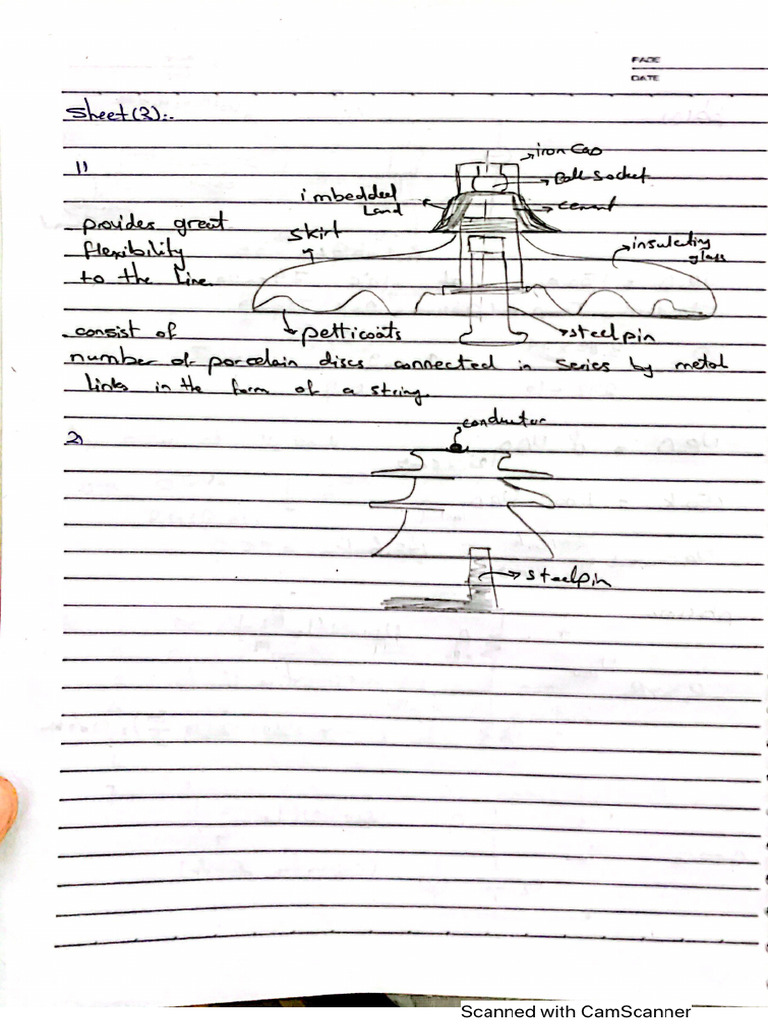 PAGE
DATE
Sheet (3):-
1)
iron Cap
Ball Socket
imbedded
Land
cement
provides great
skirt
insulating
glass
flexibility
to the Line.
consist of
petticoats
steel pin
number of porcelain discs connected in series by metal
links in the form of a string.
conductor
2)
steel pin
Scanned with CamScanner